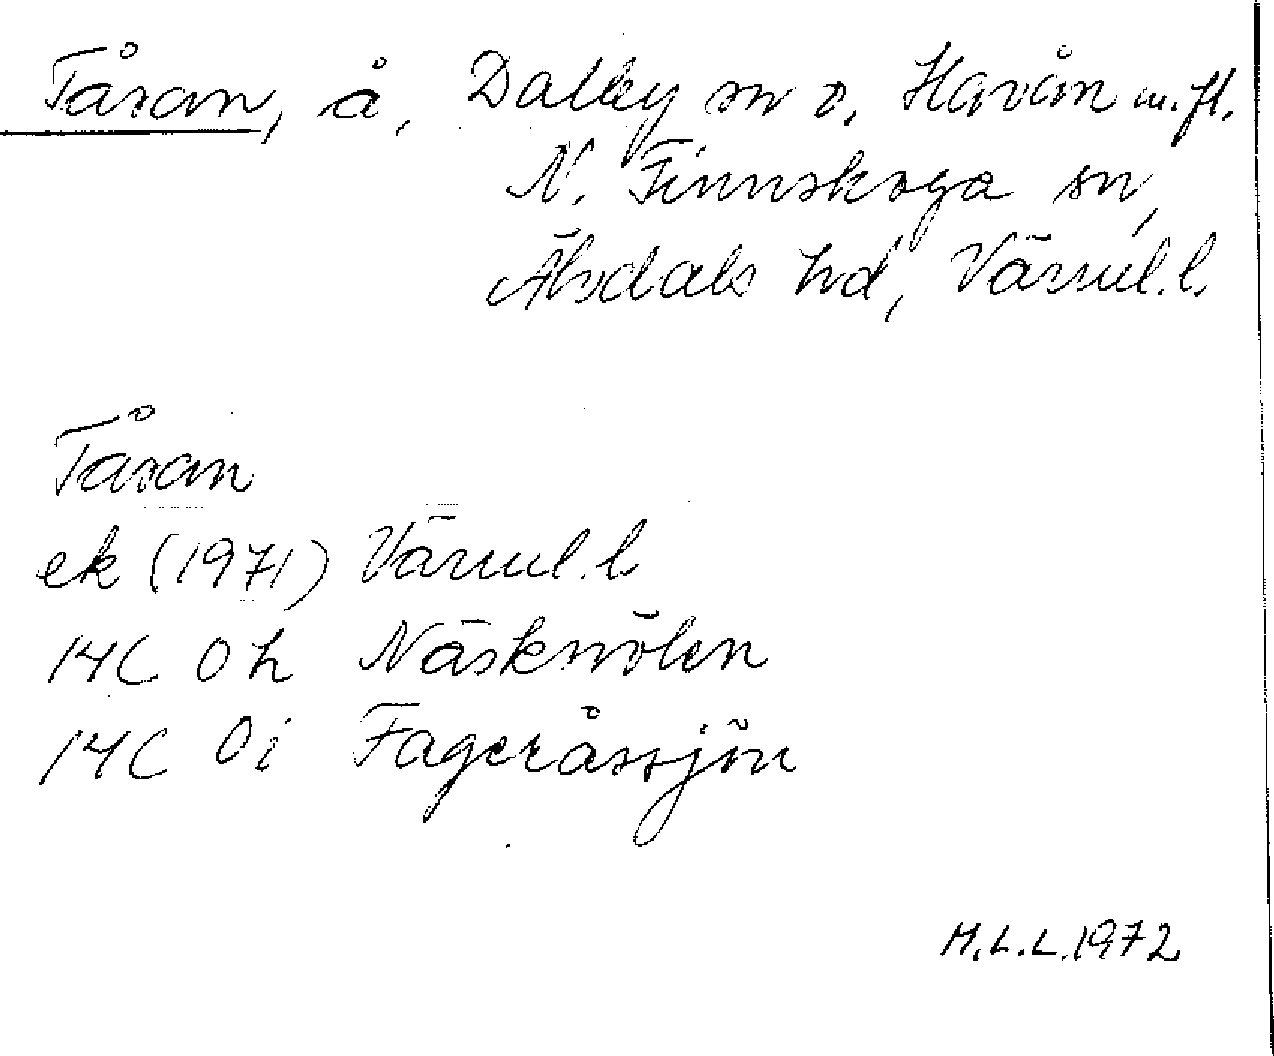 Tåran, å, Dalby sn o. Havån m.fl.
N. Finnskoga sn,
Älvdals hd, Värml.l.
Tåran
ek (1971) Värml.l.
14C 0h Näsknölen
14C 0i Fageråssjön
M.L.L.1972